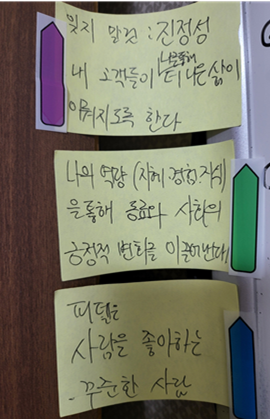 잊지 말것 : 진정성
내 고객들이 나로 통해 더 나은 삶이
이뤄지도록 한다
나의 역량 (지혜.경험.지식)
을 통해 동료와 사회의
긍정적 변화를 이끌어낸다!
피델은
사람을 좋아하는
꾸준한 사람